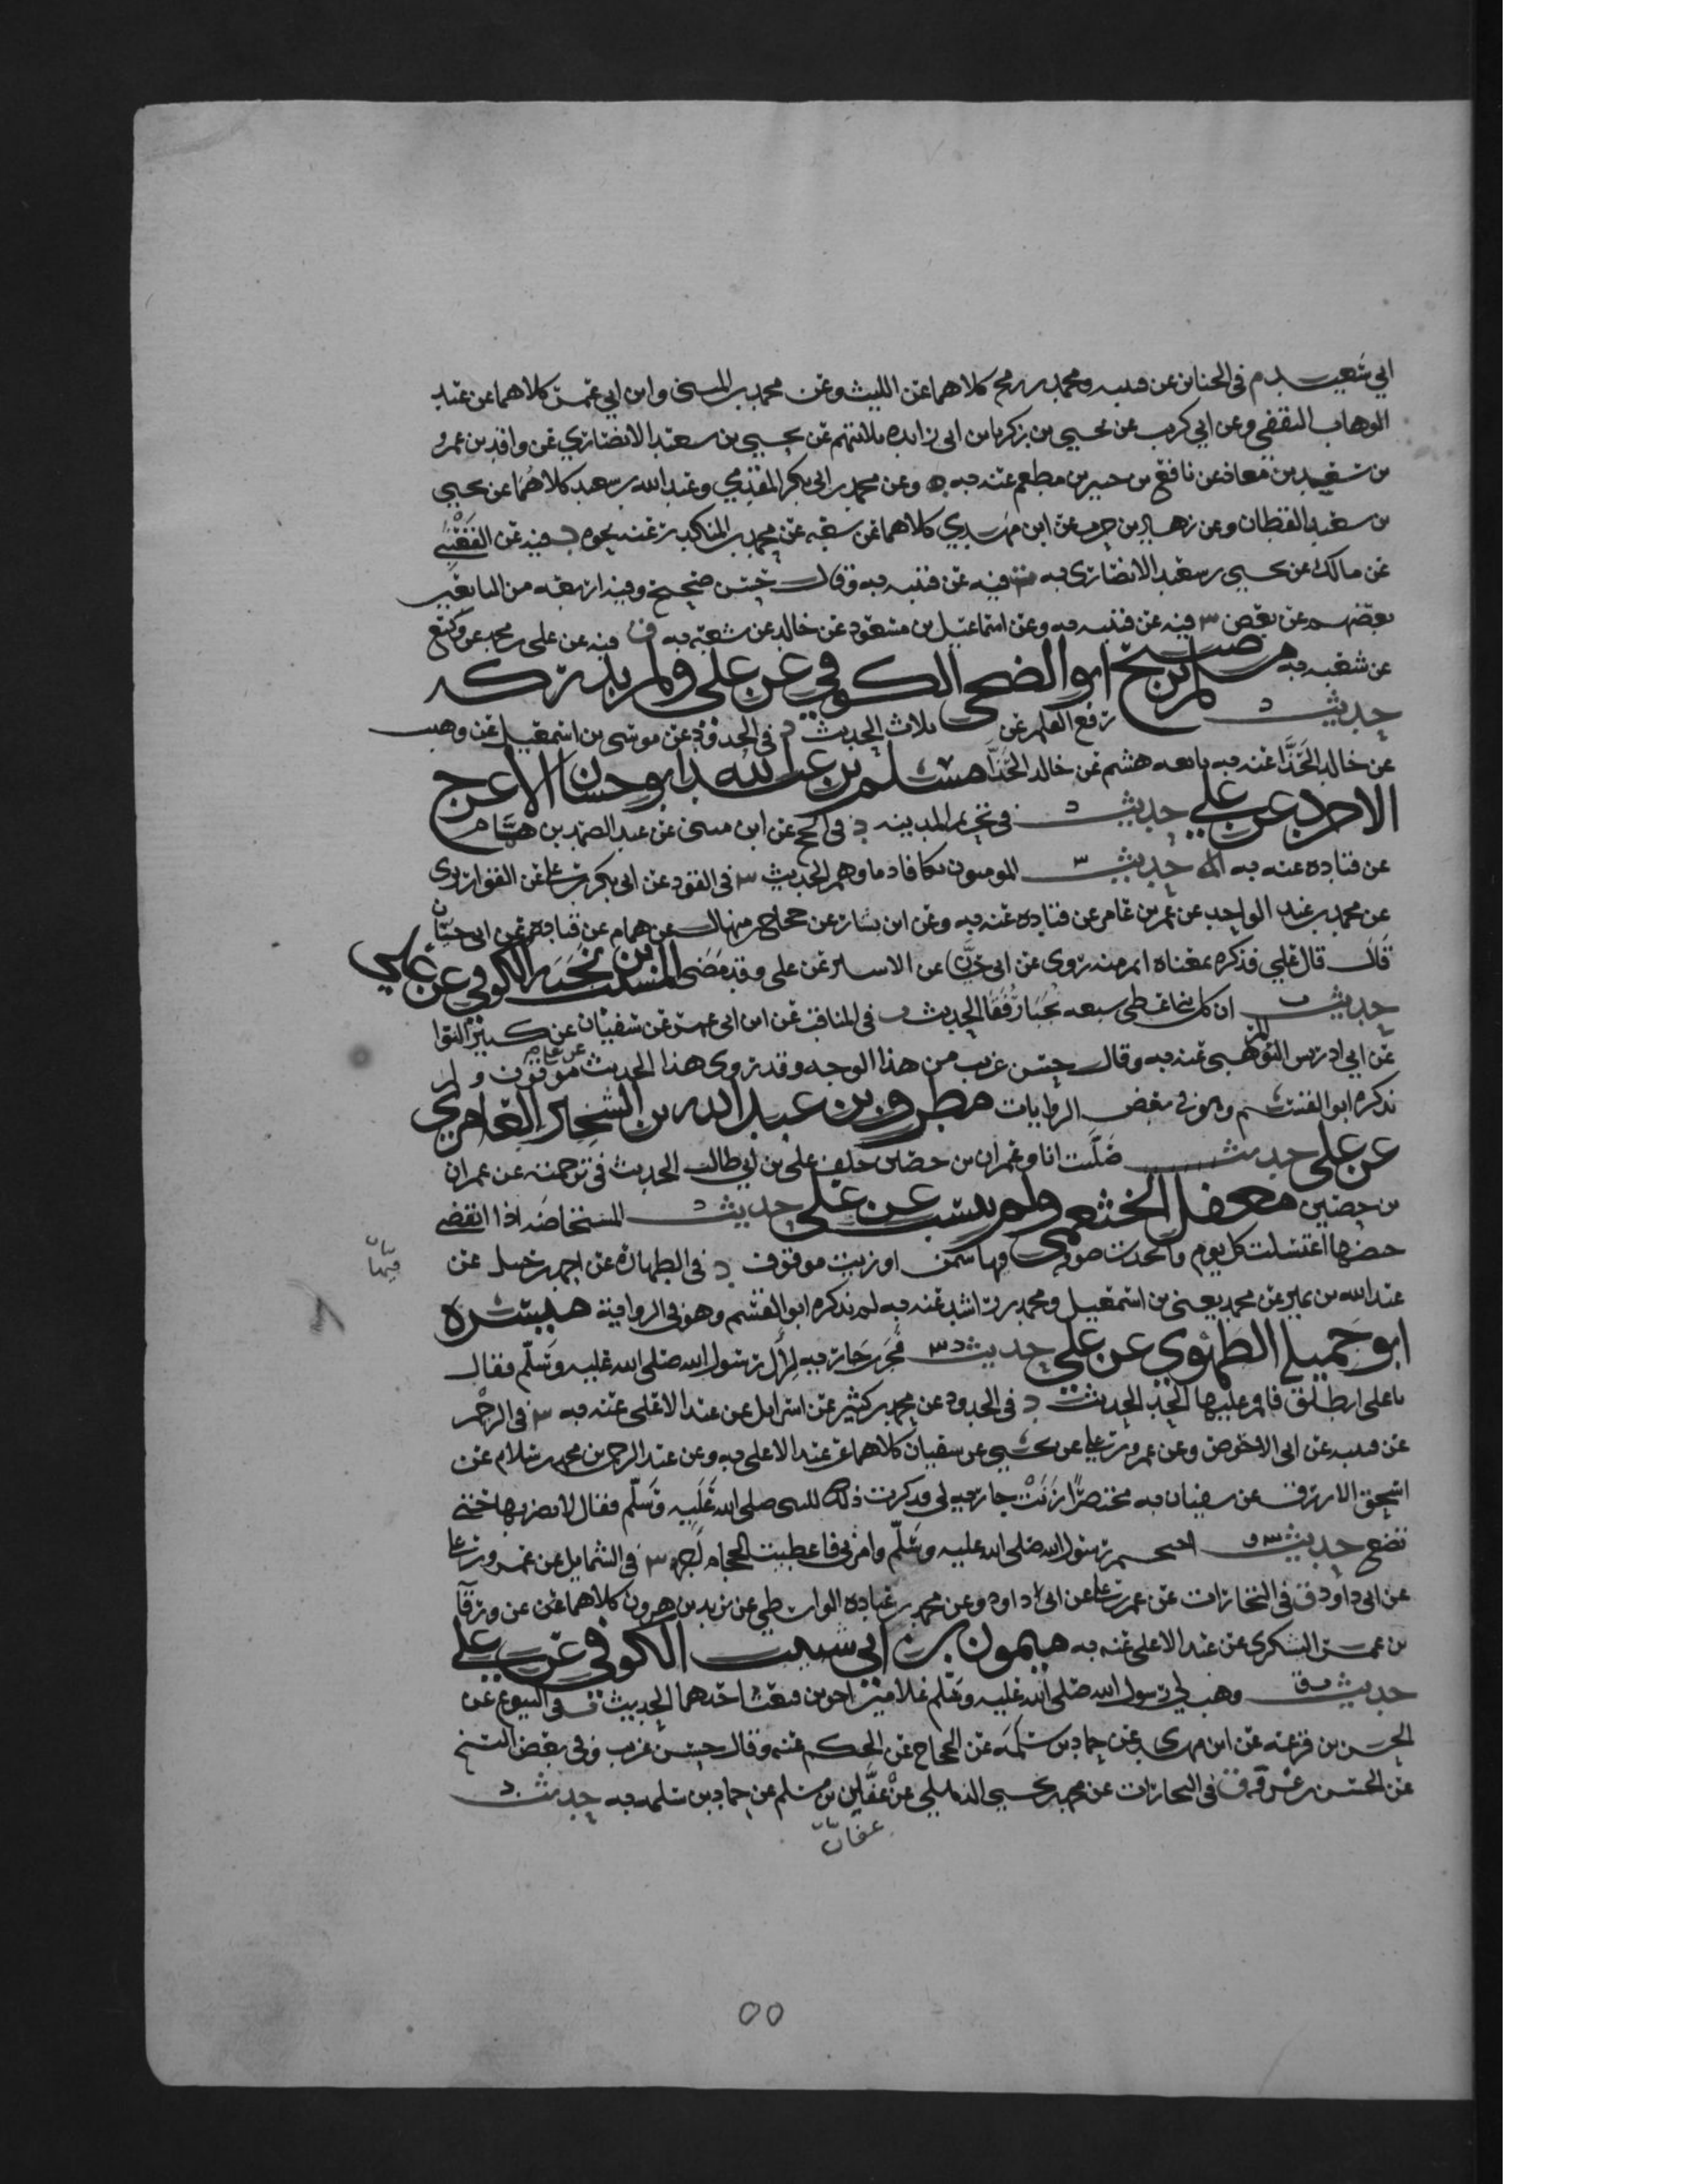 ابي شعيب م في الجنائز عن قتيبه ومحمد بن رمح كلاهما عن الليث وعن محمد بن المثنى وابن ابي عمر كلاهما عن عبد
الوهاب الثقفي وعن ابي كريب عن يحيى بن زكريا بن ابي زايده ثلاثتهم عن يحيى بن سعيد الانصاري عن واقد بن عمرو
بن سعد بن معاذ عن نافع بن جبير بن مطعم عنه به وعن محمد بن ابي بكر المقدمي وعبد الله بن سعيد كلاهما عن يحيى
بن سعيد القطان وعن زهير بن حرب عن ابن مهدي كلاهما عن شعبه عن محمد بن المنكدر عنه نحوه د فيه عن القعنبي
عن مالك عن يحيى بن سعيد الانصاري به ت فيه عن قتيبه به وقال حسن صحيح وفيه اربعه من التابعين
بعضهم عن بعض س فيه عن قتيبه به وعن اسماعيل بن مسعود عن خالد عن شعبة به ق فيه عن علي بن محمد عن وكيع
عن شعبه به مسلم بن صبيح ابو الضحى الكوفي عن علي ولم يدركه
حديث د رفع القلم عن ثلاث الحديث د في الحدود عن موسى بن اسمعيل عن وهيب
عن خالد الحذاء عنه به تابعه هشيم عن خالد الحذا مسلم بن عبد الله ابو حسان الاعرج
الاجرد عن علي حديث د في تحريم المدينه د في الحج عن ابن مثنى عن عبد الصمد بن همام
عن قتاده عنه به حديث س المومنون تكافا دماوهم الحديث س في القود عن ابي بكر بن علي عن القواريري
عن محمد بن عبد الواحد عن عمر بن عامر عن قتاده عنه به وعن ابن بشار عن حجاج بن منهال عن همام عن قتاده عن ابي حسان
قال قال علي فذكره بمعناه اتم منه روى عن ابي حسان عن الاشتر عن علي وقد مضى المسيب بن نجبه الكوفي عن علي
حديث ت ان كل نبي اعطي سبعه نجبا رفقا الحديث ت في المناقب عن ابن ابي عمر عن سفيان عن كثير النوا
عن ابي ادريس المرهبي عنه به وقال حسن غريب من هذا الوجه وقد روى هذا الحديث عن علي موقوف ولم
يذكره ابو القسم وهو في بعض الروايات مطرف بن عبد الله بن الشخير العامري
عن علي حديث صليت انا وعمران بن حصين خلف علي بن ابي طالب الحديث في ترجمته عن عمران
بن حصين معقل الخثعمي ولم ينسب عن علي حديث د المستحاضه اذا انقضى
حيضها اغتسلت كل يوم واتخذت صوفه فيها سمن او زيت موقوف د في الطهارة عن احمد بن حنبل عن
فيها
عبد الله بن نمير عن محمد يعني بن اسمعيل ومحمد بن راشد عنه به لم يذكره ابو القسم وهو في الرواية ميسرة
ابو جميله الطهوي عن علي حديث د س فجرت جاريه لآل رسول الله صلى الله عليه وسلم فقال
يا علي انطلق فاقم عليها الحد الحديث د في الحدود عن محمد بن كثير عن اسرايل عن عبد الاعلى عنه به س في الرجم
عن قتيبه عن ابي الاحوص وعن عمرو بن علي عن يحيى عن سفيان كلاهما عن عبد الاعلى به وعن عبد الرحمن بن محمد بن سلام عن
اسحق الازرق عن سفيان به مختصرا زنت جاريه لي فذكرت ذلك للنبي صلى الله عليه وسلم فقال لا تضربها حتى
تضع حديث احتجم رسول الله صلى الله عليه وسلم وامرني فاعطيت الحجام اجره في الشمايل عن عمرو بن علي
عن ابي داود ق في التجارات عن عمرو بن علي عن ابي داود وعن محمد بن عباده الواسطي عن يزيد بن هرون كلاهما عن ورقا
بن عمر اليشكري عن عبد الاعلى عنه به ميمون بن ابي شبيب الكوفي عن علي
حديث ت ق وهب لي رسول الله صلى الله عليه وسلم غلامين اخوين فبعت احدهما الحديث ت في البيوع عن
الحسن بن قزعه عن ابن مهدي عن حماد بن سلمه عن الحجاج عن الحكم عنه وقال حسن غريب وفي بعض النسخ
عن الحسن بن عرفة ق في التجارات عن محمد بن يحيى الذهلي عن عفان بن مسلم عن حماد بن سلمه به حديث د
عفان
٥٥